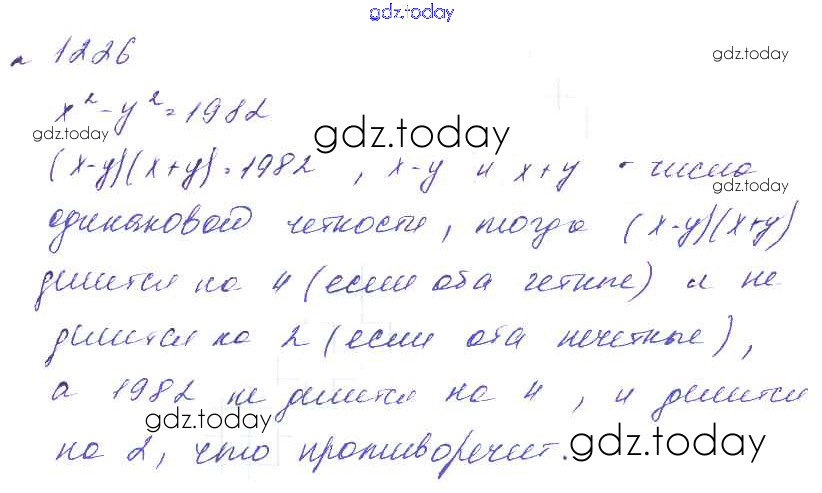 gdz.today
№ 1226
gdz.today
x² - y² = 1982
gdz.today
gdz.today
(x-y)(x+y) = 1982, x-y и x+y - числа
gdz.today
одинаковой четкости, тогда (x-y)(x+y)
делится на 4 (если оба четные) и не
делится на 2 (если оба нечетные),
а 1982 не делится на 4, и делится
gdz.today
на 2, что противоречит.
gdz.today